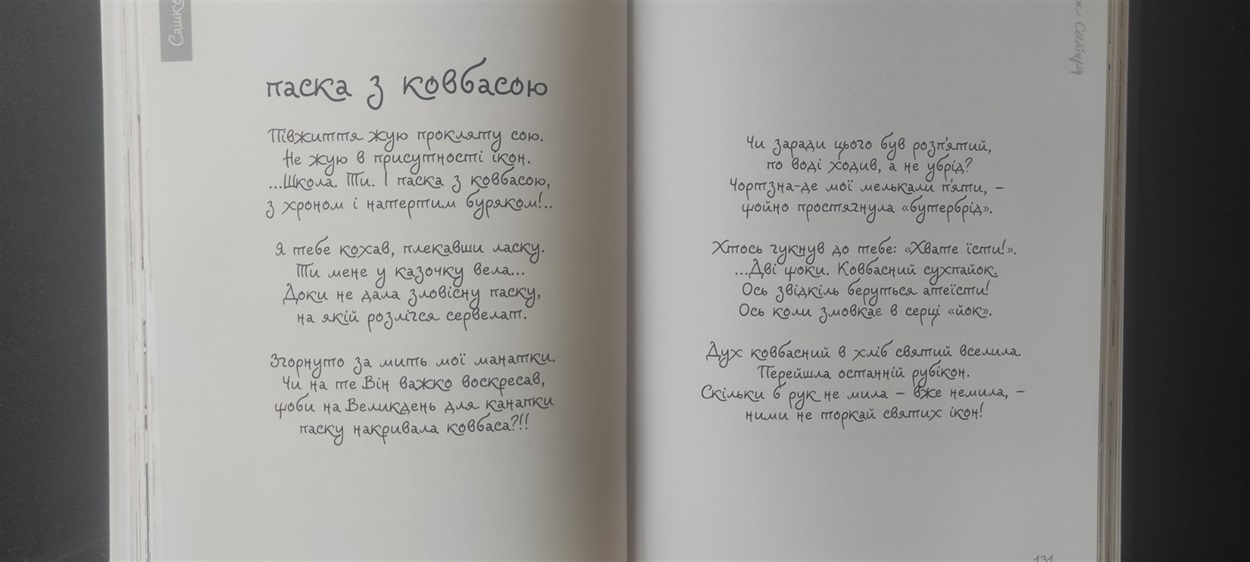 Сашко
паска з ковбасою
Півжиття жую прокляту сою.
Не жую в присутності ікон.
...Школа. Ти. І паска з ковбасою,
з хроном і натертим буряком!..
Я тебе кохав, плекавши ласку.
Ти мене у казочку вела...
Доки не дала зловісну паску,
на якій розлігся сервелат.
Згорнуто за мить мої манатки.
Чи на те Він важко воскресав,
щоби на Великдень для канапки
паску накривала ковбаса?!!
Чи заради цього був розп'ятий,
по воді ходив, а не убрід?
Чортзна-де мої мелькали п'яти, –
щойно простягнула «бутербрід».
Хтось гукнув до тебе: «Хвате їсти!».
...Дві щоки. Ковбасний сухпайок.
Ось звідкіль беруться атеїсти!
Ось коли змовкає в серці «йок».
Дух ковбасний в хліб святий вселила.
Перейшла останній рубікон.
Скільки б рук не мила – вже немила, –
ними не торкай святих ікон!
131